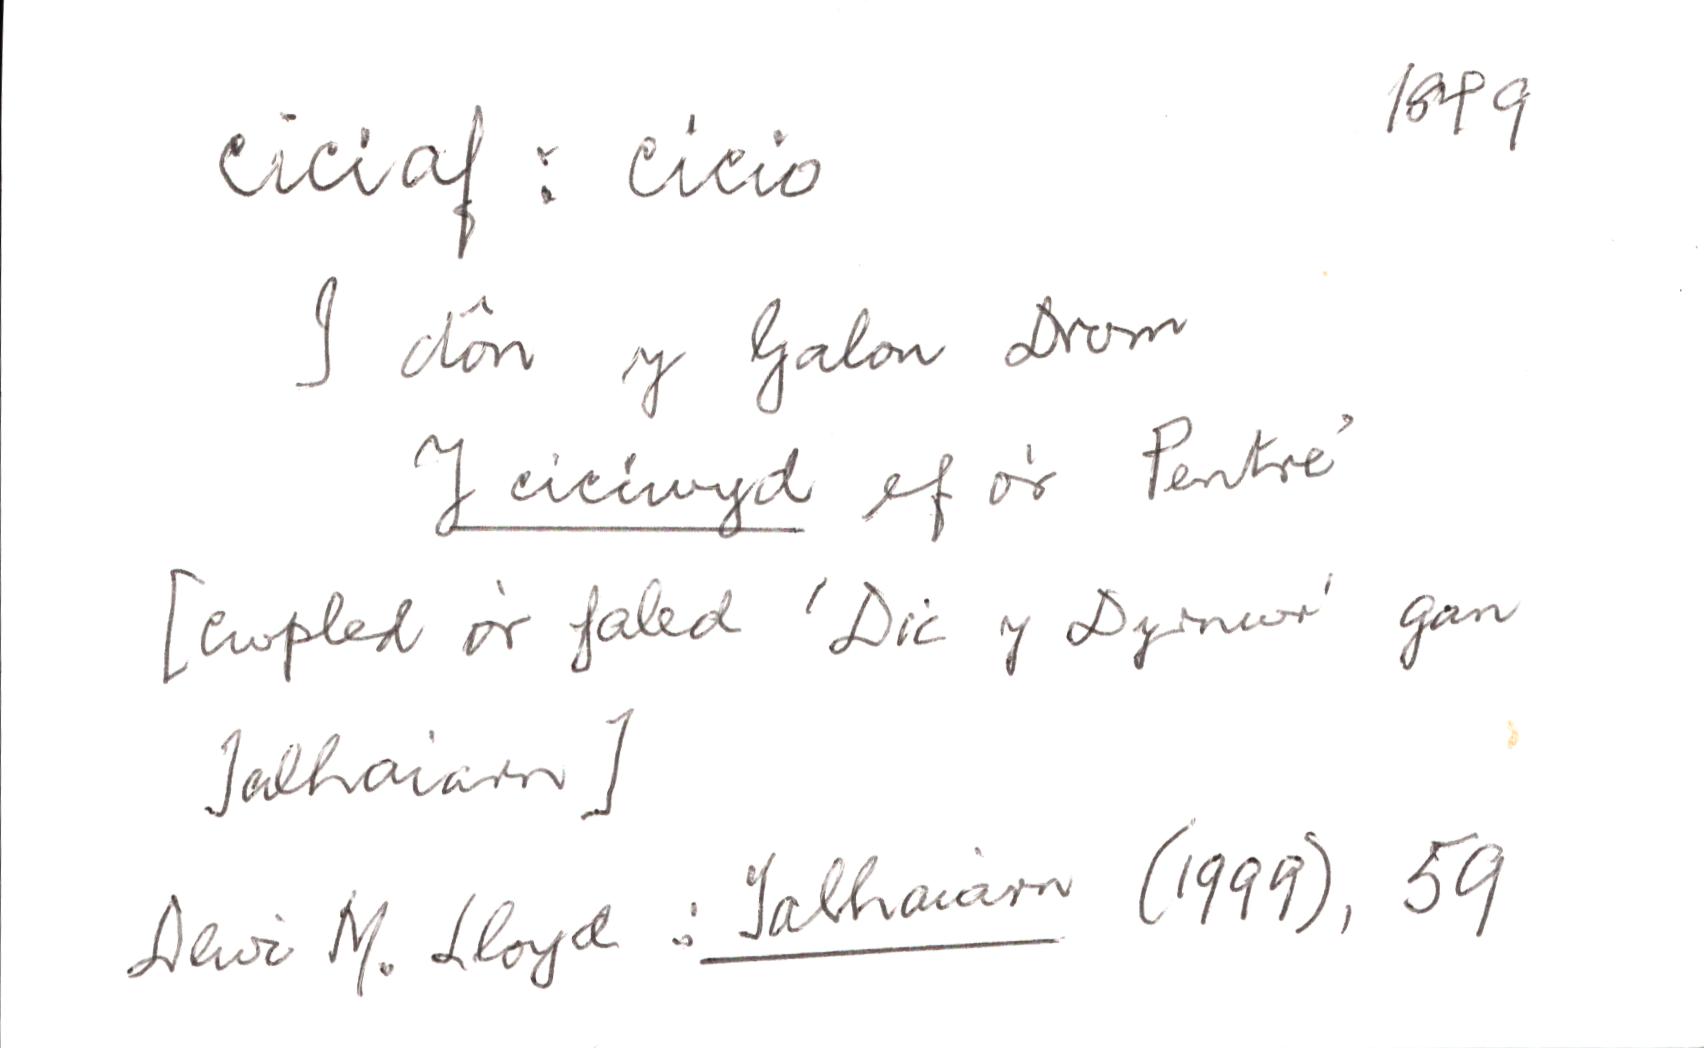 1849
ciciaf : cicio
I dôn y Galon Drom
Y ciciwyd ef o'r Pentre'
[cwpled o'r faled 'Dic y Dyrnwr' gan
Talhaiarn]
Dewi M. Lloyd : Talhaiarn (1999), 59